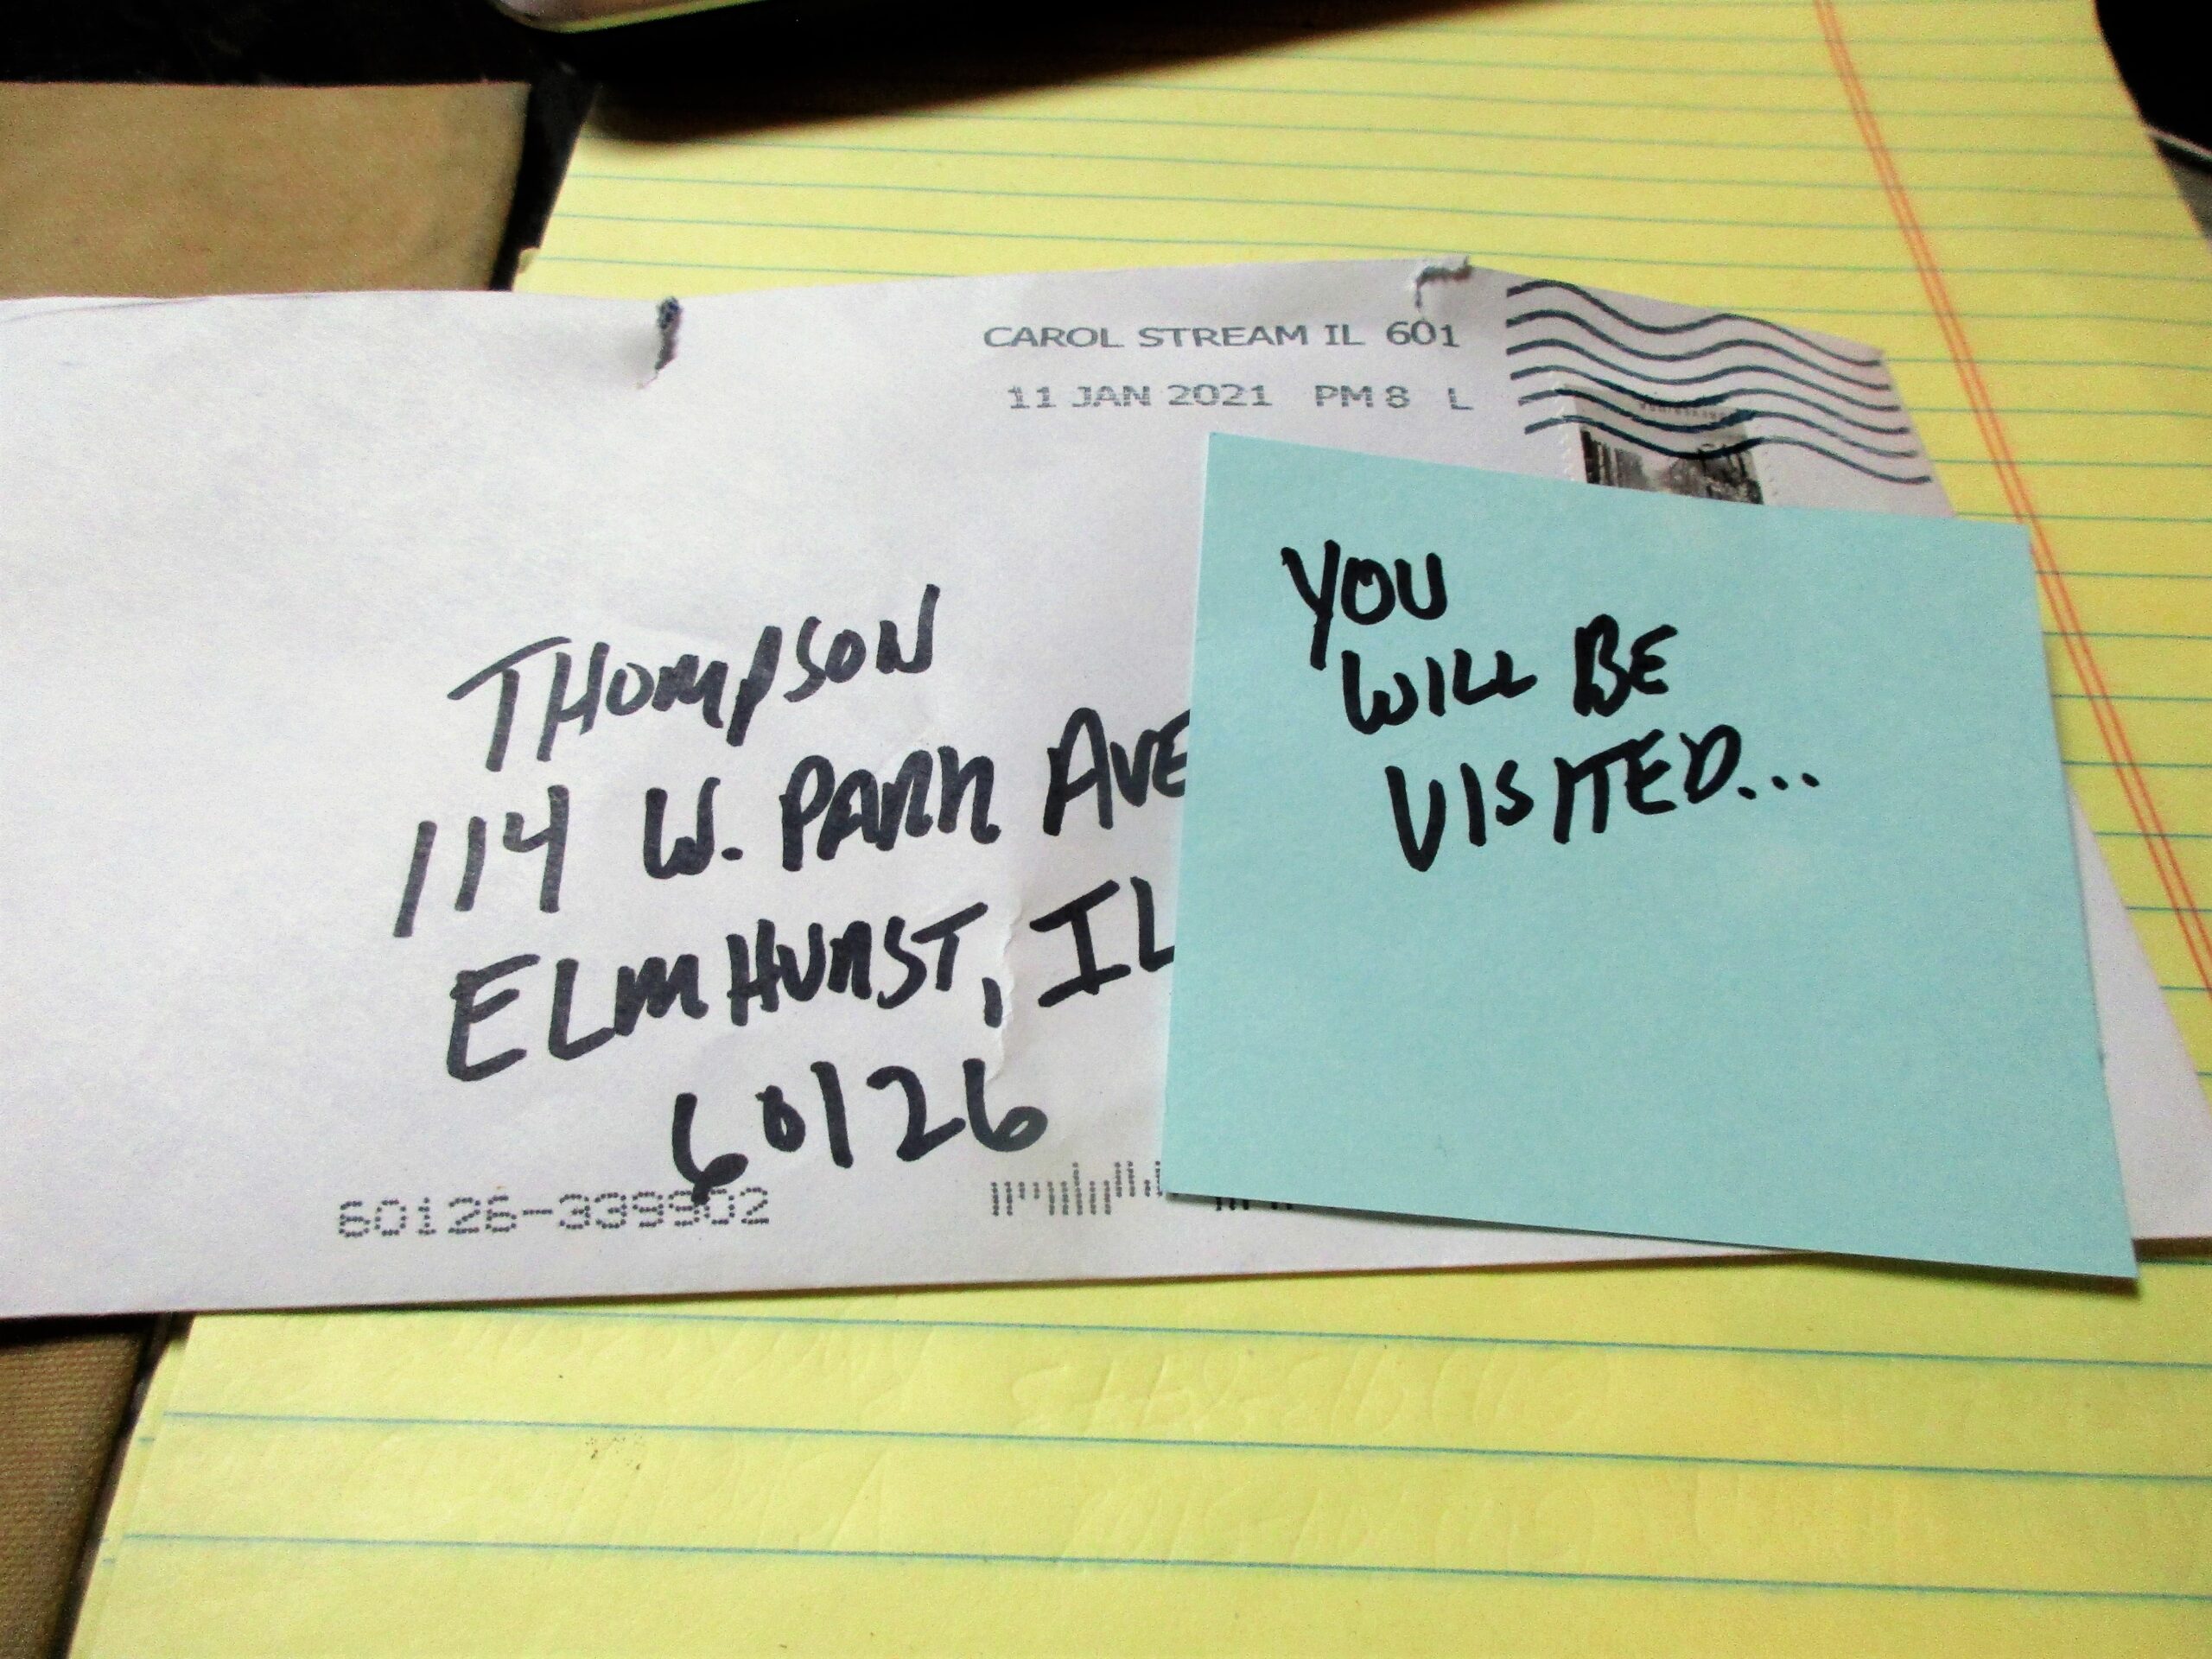 CAROL STREAM IL 601
11 JAN 2021 PM 8 L
THOMPSON
114 W. PARK AVE
ELMHURST, IL
60126
60126-339902
YOU
WILL BE
VISITED...